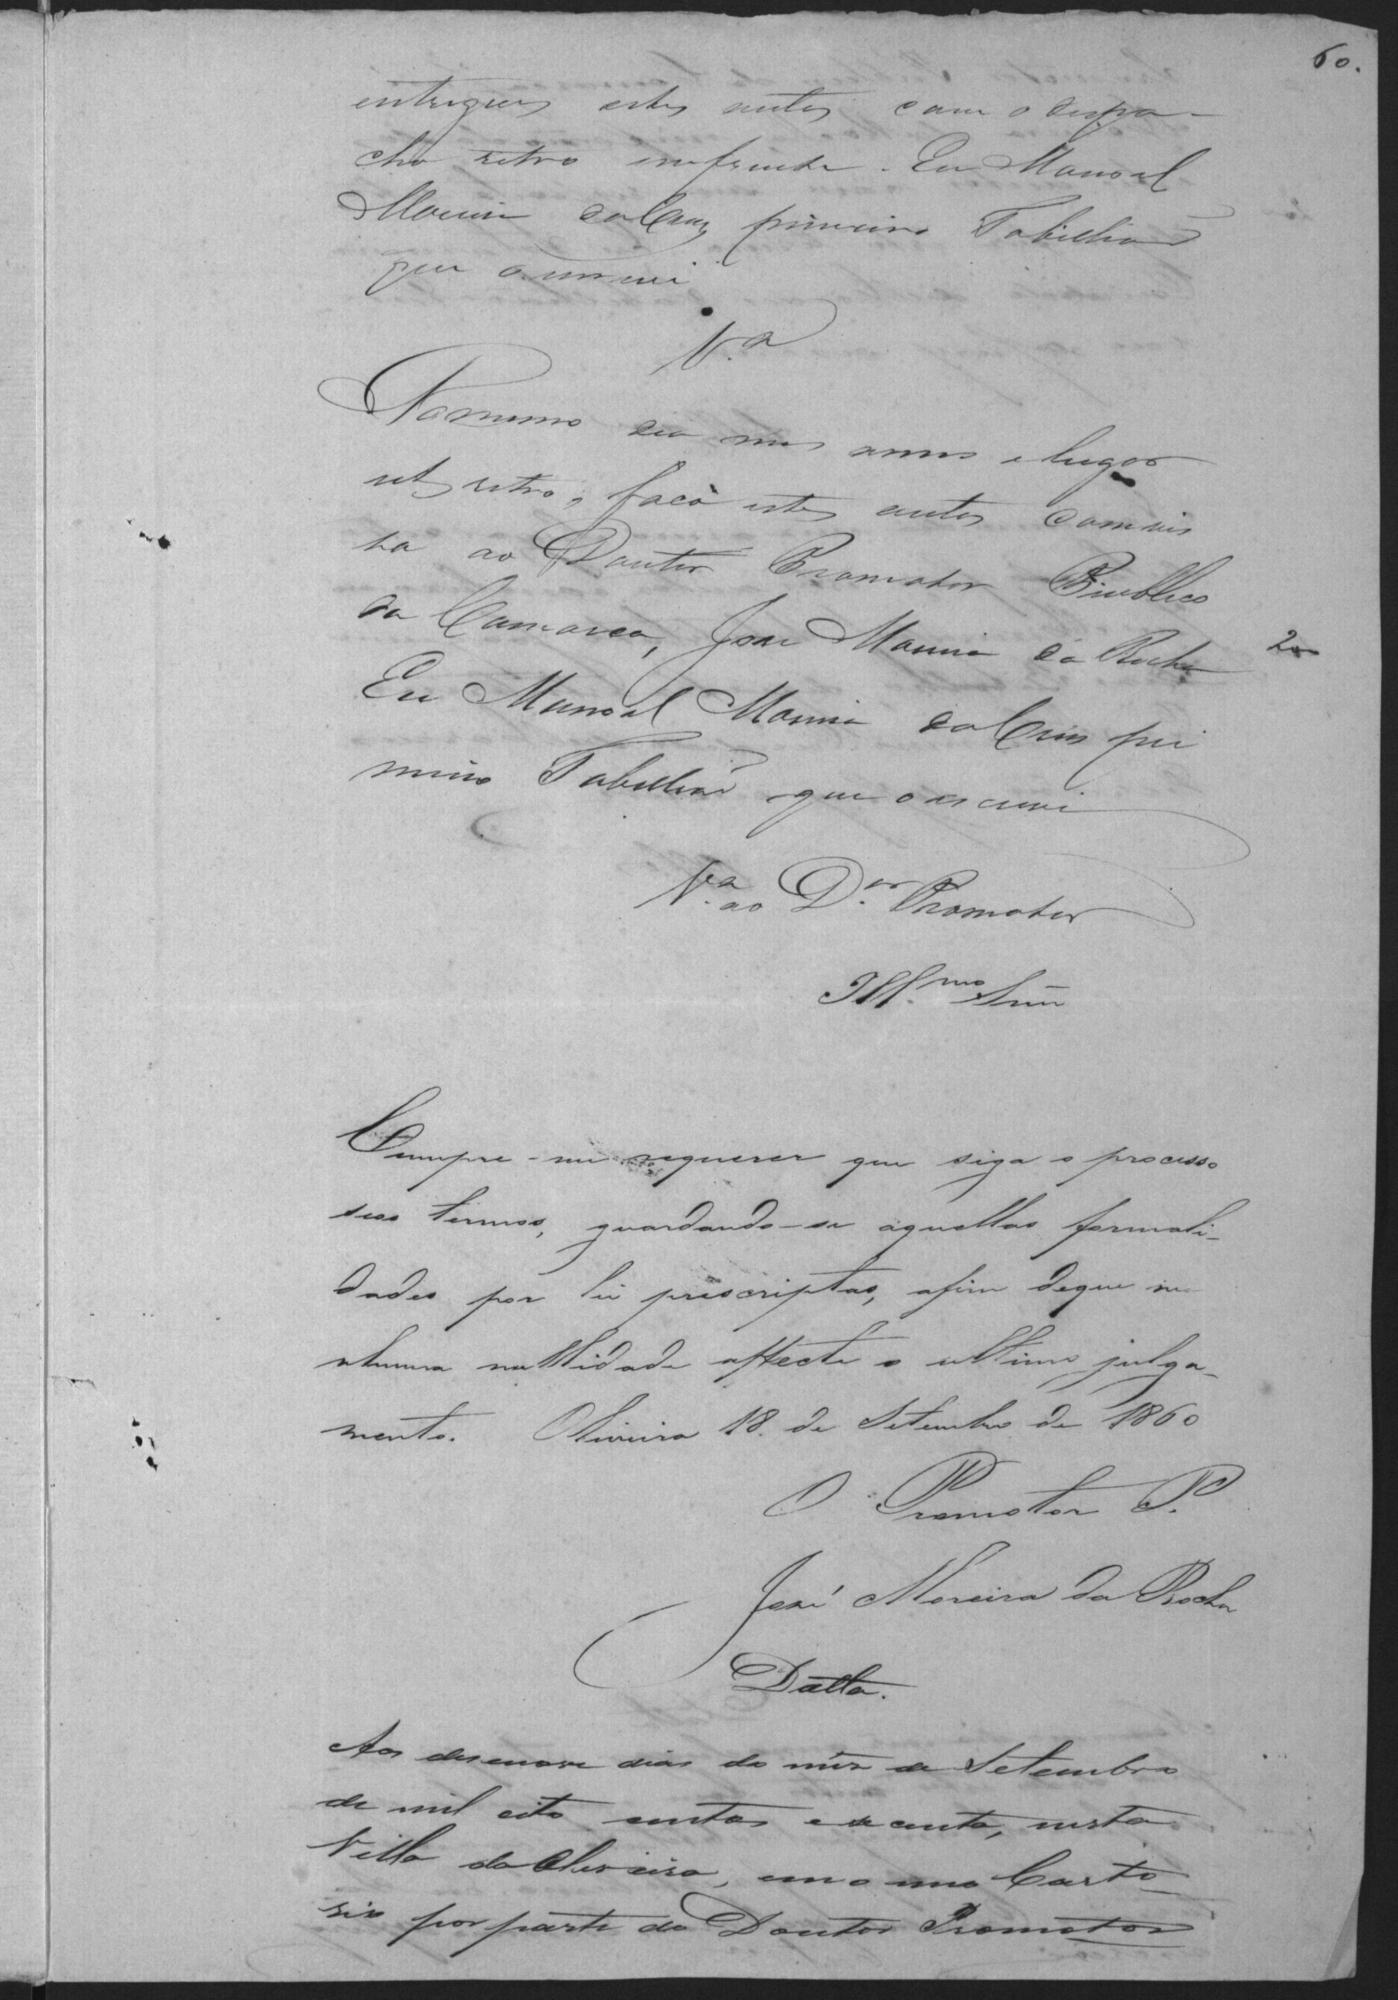 60.
entregues estes autos com o despa-
cho retro em frente. Eu Manoel
Maria da Cruz primeiro Tabellião
que o escrevi
V.ª
No mesmo dia mes anno e lugar
ut retro, faço estes autos com vis
ta ao Doutor Promotor Publico
da Comarca, José Moreira da Rocha
200
Eu Manoel Maria da Cruz pri
meiro Tabellião que o escrevi
V.ª ao D.or Promotor
Ill.mo Snr
Cumpre-me requerer que siga o processo
seos termos, guardando-se aquellas formali-
dades por lei prescriptas, afim de que ne
nhuma nullidade affecte o ultimo julga-
mento. Oliveira 18 de Setembro de 1860
O Promotor P.
José Moreira da Rocha
Datta.
Aos desenove dias do mes de Setembro
de mil oito centos e secenta, nesta
Villa da Oliveira, em o meo Carto-
rio por parte do Doutor Promotor